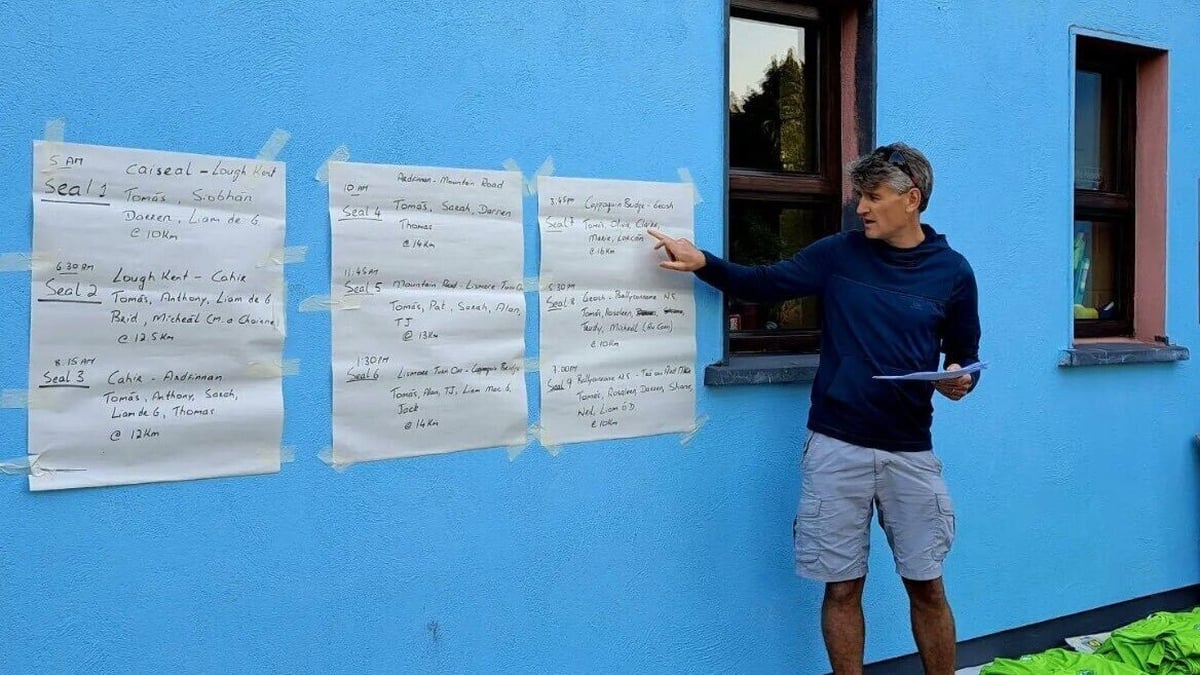 5 AM
Caiseal - Lough Kent
Seal 1
Tomás, Siobhán
Darren, Liam de G.
@ 10Km
6.30 AM
Lough Kent - Cahir
Seal 2
Tomás, Anthony, Liam de G
Bríd, Micheál (M. a Chairne)
@ 12.5 Km
8.15 AM
Seal 3
Cahir - Ardfinnan
Tomás, Anthony, Sarah,
Liam de G, Thomas
@ 12Km
10 AM
Ardfinnan - Mountain Road
Seal 4
Tomás, Sarah, Darren
Thomas
@ 14Km
11.45 AM
Mountain Road - Lismore Turn
Seal 5
Tomás, Pat, Sarah, Alan,
TJ
@ 13Km
1:30 PM
Seal 6
Lismore Turn - Bridge
Tomás, Alan, TJ, Liam Mac G,
Jack
@ 14Km
3:45 PM
Cappaquin Bridge - Geosh
Seal 7
Tomás, Olivia,
Marie, Lorcán
@ 16Km
5.30 PM
Seal 8
Geosh - N.S.
Tomás, Roisleen,
Micheál
@ 10Km
7.00 PM
Seal 9
N.S. -
Tomás, Roisleen, Darren, Shane,
Neil, Liam Ó D.
@ 10Km